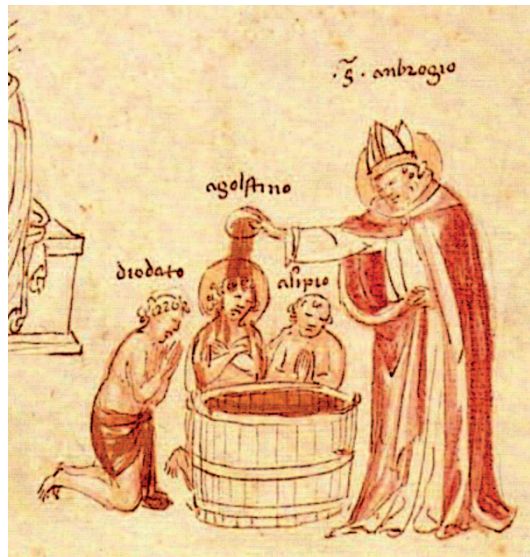 .S. anbrogio
agolstino
diodato
alipio